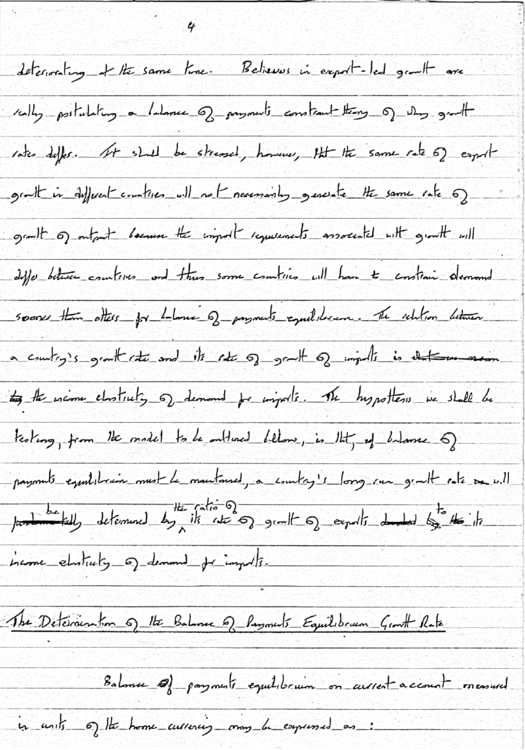 4
deteriorating at the same time. Believers in export-led growth are
really postulating a balance of payments constraint theory of why growth
rates differ. It should be stressed, however, that the same rate of export
growth in different countries will not necessarily generate the same rate of
growth of output because the import requirements associated with growth will
differ between countries and thus some countries will have to constrain demand
sooner than others for balance of payments equilibrium. The relation between
a country's growth rate and its rate of growth of imports is
the income elasticity of demand for imports. The hypothesis we shall be
testing, from the model to be outlined below, is that, if balance of
payments equilibrium must be maintained, a country's long run growth rate will
be determined by the ratio of its rate of growth of exports to its
income elasticity of demand for imports.
The Determination of the Balance of Payments Equilibrium Growth Rate
Balance of payments equilibrium on current account measured
in units of the home currency may be expressed as :